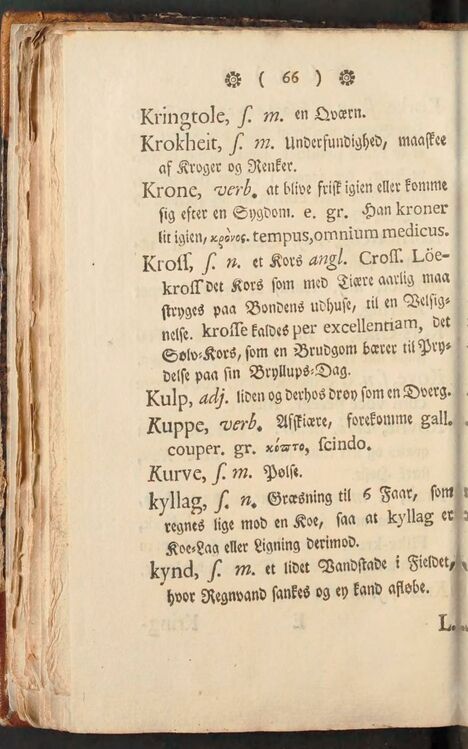 ( 66 )
Kringtole, ſ. m. en Qværn.
Krokheit, ſ. m. Underfundighed, maaſkee
af Kroger og Renker.
Krone, verb. at blive friſk igien eller komme
ſig efter en Sygdom. e. gr. Han kroner
lit igien, κρόνος. tempus, omnium medicus.
Kroſſ, ſ. n. et Kors angl. Croſſ. Löe-
kroſſ det Kors ſom med Tiære aarlig maa
ſtryges paa Bondens udhuse, til en Velſig-
nelſe. kroſſe kaldes per excellentiam, det
Sølv-Kors, ſom en Brudgom bærer til Pry-
delſe paa ſin Bryllups-Dag.
Kulp, adj. liden og derhos drøy ſom en Dverg.
Kuppe, verb. Afſkiære, forekomme gall.
couper. gr. κόπτο, ſcindo.
Kurve, ſ. m. Pølſe.
kyllag, ſ. n. Græsning til 6 Faar, ſom
regnes lige mod en Koe, ſaa at kyllag er
Koe-Lag eller Ligning derimod.
kynd, ſ. m. et lidet Vandſtade i Fieldet,
hvor Regnvand ſankes og ey kand afløbe.
L.